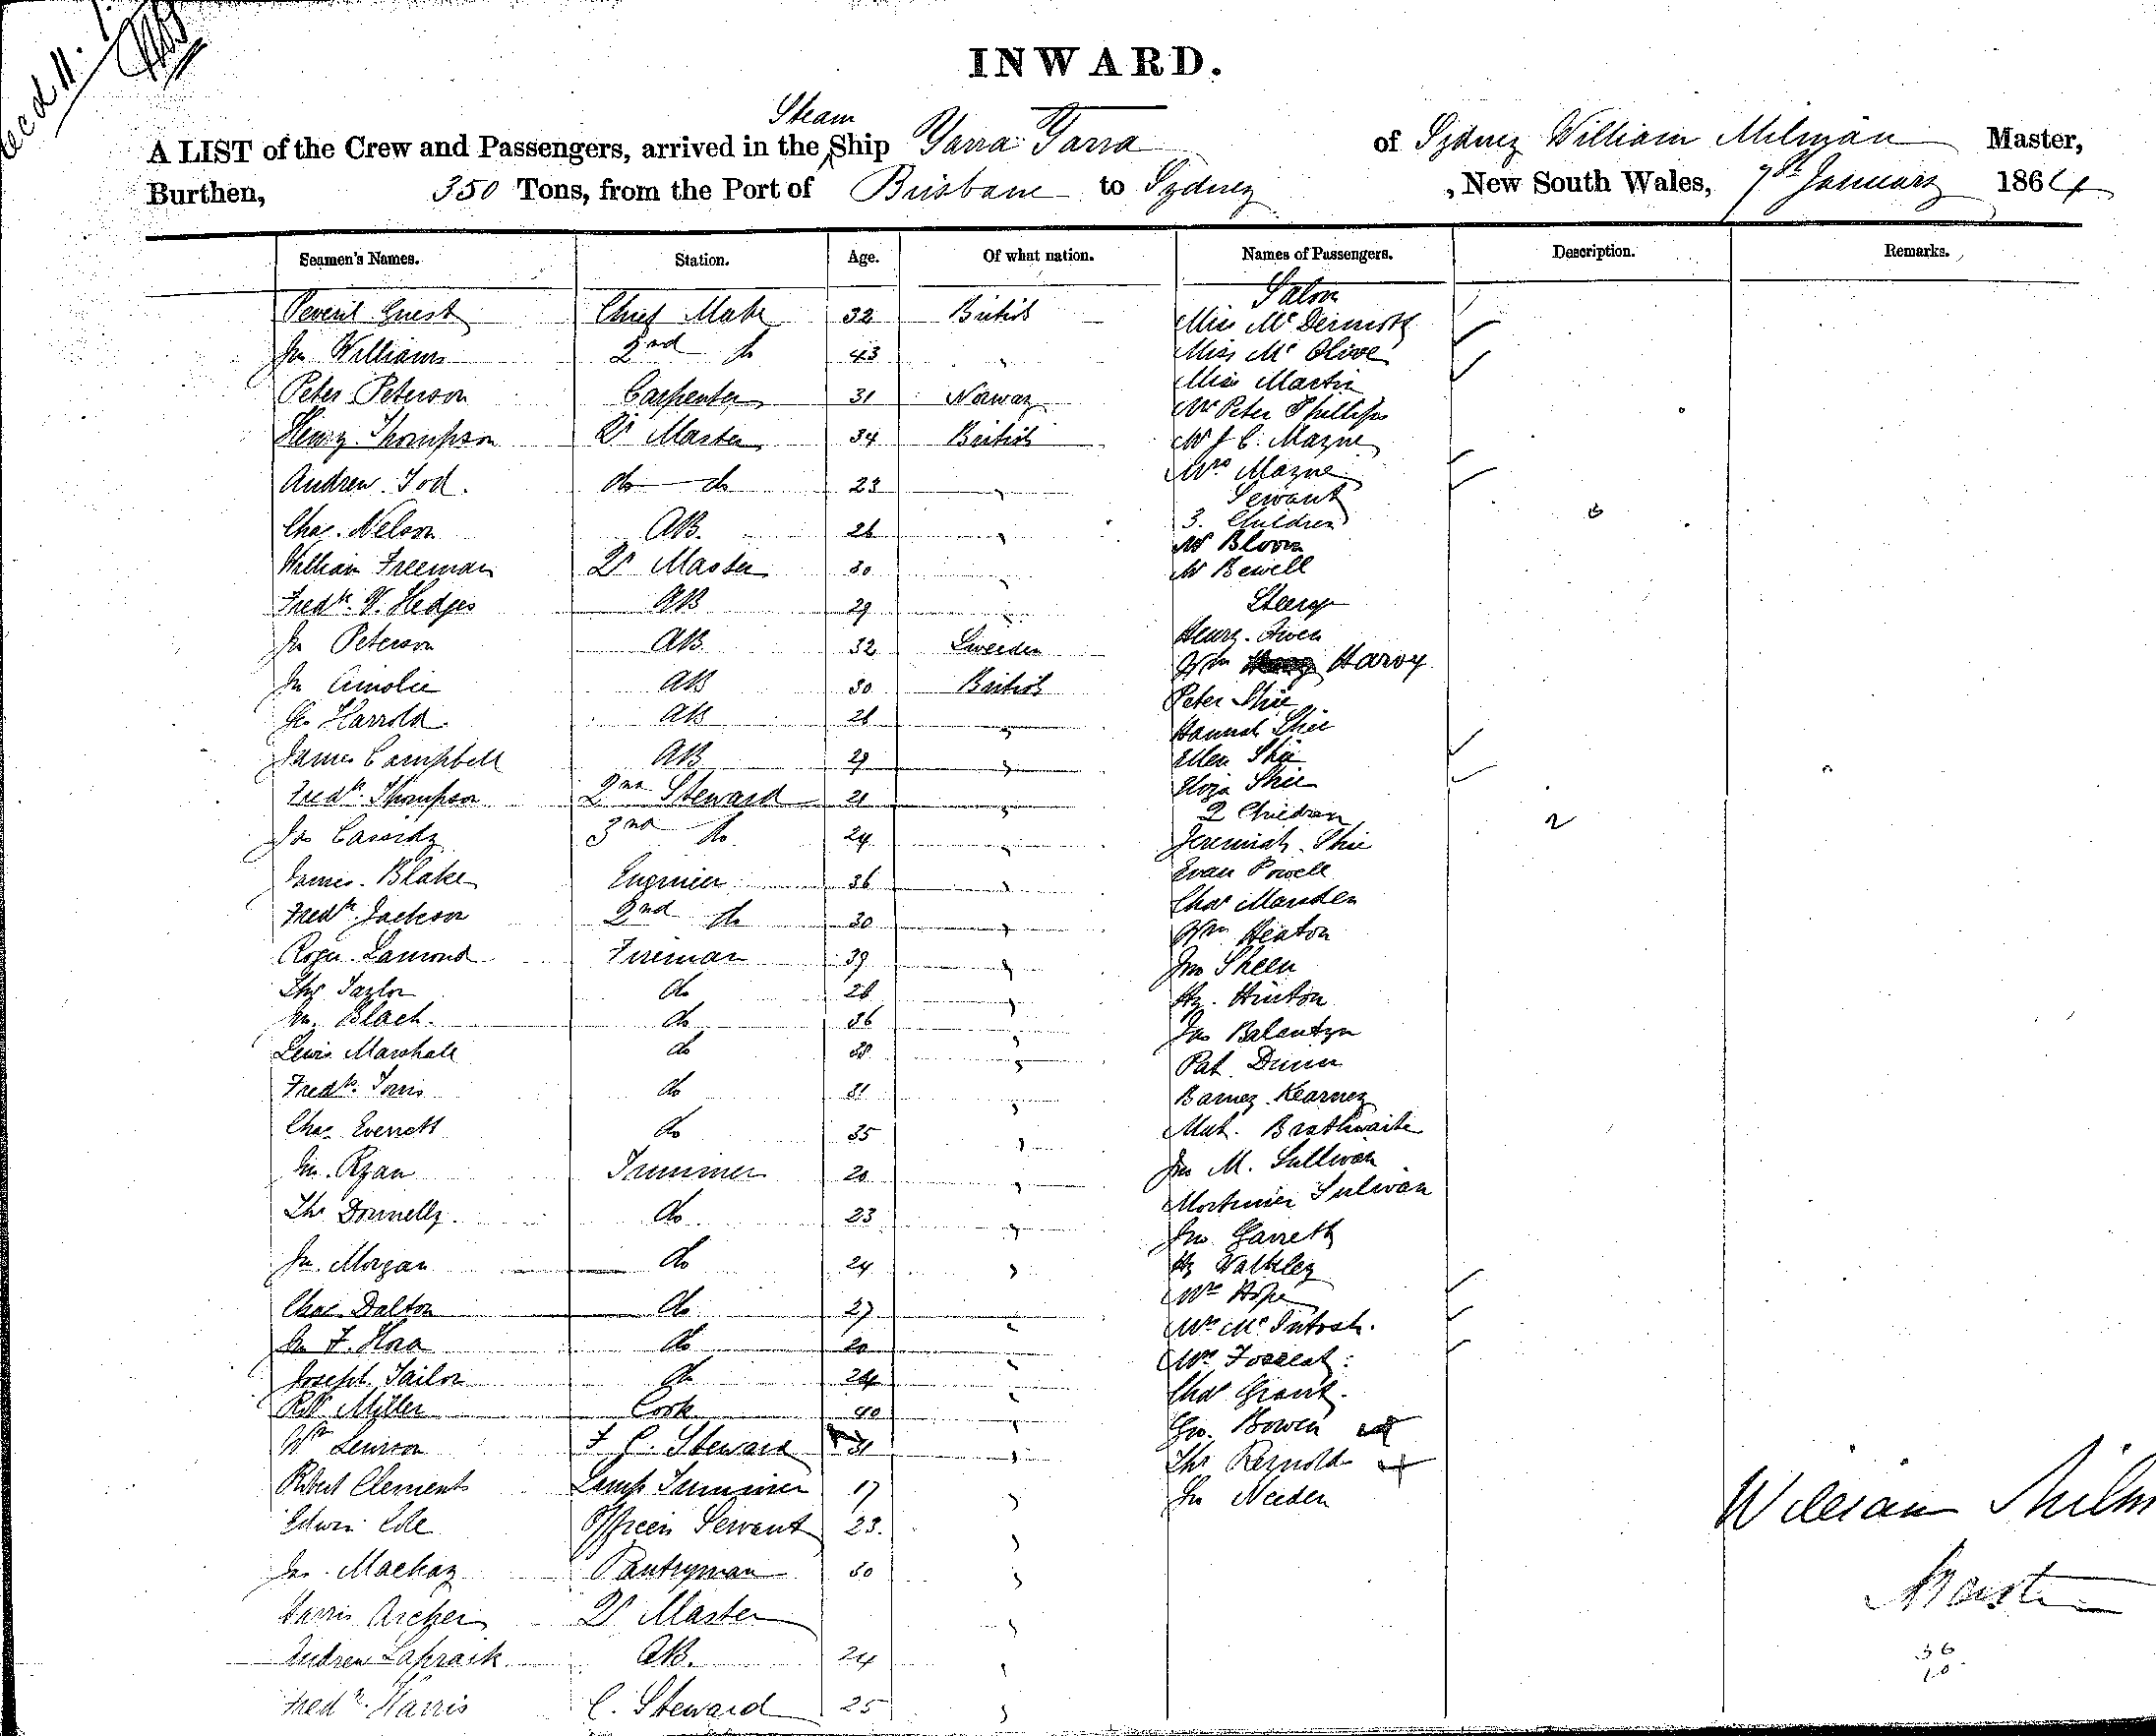 INWARD.
Steam
A LIST of the Crew and Passengers, arrived in the Ship Yarra Yarra of Sydney William Milman Master,
Burthen, 350 Tons, from the Port of Brisbane to Sydney, New South Wales, 7th January 1864
Seamen's Names. Station. Age. Of what nation. Names of Passengers. Description. Remarks.
Salon
Peveril Guest Chief Mate 32 British Miss McDermott
Jn Williams 2nd do 43 " Miss Mc Olive
Miss Martin
Peter Peterson Carpenter 31 Norway Mr Peter Phillips
Henry Thompson Qr Master 34 British Mr J C. Mayne
Mrs Mayne
Andrew Tod. do do 23 " Servant
Chas. Nelson AB. 26 " 3. Children
Mr Bloom
William Freeman Qr Master 30 " Mr Bewell
Fredk. W. Hedges AB 29 " Steerage
Jn Peterson AB. 32 Sweden Henry
Wm Harvy
Jn Ainslie AB 30 British Peter Shie
Harrold AB 26 " Hannah Shie
James Campbell AB 29 " Ellen Shie
Fredk. Thompson 2nd Steward 21 " Eliza Shie
2 Children 2
Jas Cassidy 3rd do 24 " Jeremiah Shie
James Blake Engineer 36 " Evan Powell
Chas Marsden
Fredk. Jackson 2nd do 30 " Wm Heaton
Roger Lamond Fireman 39 " Jno Sheen
Thos Taylor do 28 " Hy. Hinton
Jn. Black. do 36 " Jas Balantyn
Lewis Marshall do 38 " Pat Dunn
Fredk. do 31 " Barney Kearney
Chas Everett do 35 " Mat. Brathwaite
Jn. Ryan Trimmer 20 " Jno M. Sullivan
Mortimer Sulivan
Thos Donnelly. do 23 " Jno. Garrett
Jn. Morgan do 24 " Hy
Chas Dalton do 27 " Mrs Hope
Jn F. Hora do 20 " Mrs McIntosh.
Joseph Tailor do 24 " Mrs
Chas Grant.
Robt Miller Cook 40 " Geo. Bowen
Wm F C. Steward 31 " Thos Reynolds
Robert Clements Lamp Trimmer 17 " Jn Neiden
Edwin Cole Officers Servant 23. "
Jas. Mackay Pantryman 30 "
Harris Archer Qr Master "
Andrew Lapraik AB. 24 "
Fredk. Harris C. Steward 25 "
William Milm
Master
36
10